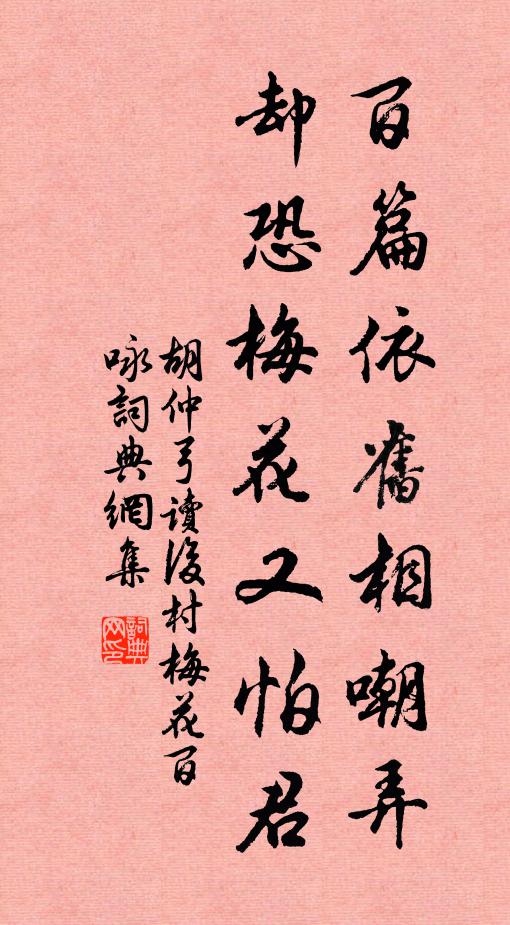 百篇依舊相嘲弄
却恐梅花又怕君
胡仲弓讀後村梅花百
咏詞典網集
詞典网印